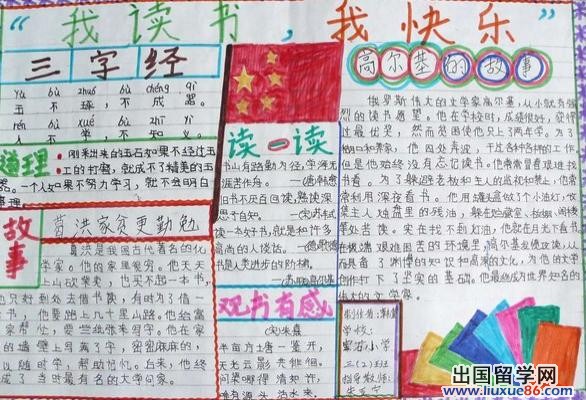 “我读书，我快乐”
三字经
yù bù zhuó bù chéng qì
玉不琢，不成器。
rén bù xué bù zhī yì
人不学，不知义。
道理
·刚采出来的玉石如果不经过玉
工的打磨，就成不了精美的玉
器。一个人如果不努力学习，就不会明白
事理。
故事
葛洪家贫更勤勉
葛洪是我国古代著名的化
学家。他的家里很穷。他天天
上山砍柴卖，也买不起一本书，
也只好到处去借书读，有时为了借一
书，他要跑上几十里山路。他给富
家帮忙，
墙壁上写满了字，密密麻麻的，
以随时学，帮助记忆。后来，他终
成了当时最有名的大学问家。
读一读
书山有路勤为径，学海无
涯苦作舟。
旧书不厌百回读，熟读深
思子自知。
读一本好书，就是和许多
高尚的人谈话。
书是人类进步的阶梯。
观书有感
(宋)朱熹
半亩方塘一鉴开，
天光云影共徘徊。
问渠哪得清如许，
唯有源头活水来。
高尔基的故事
俄罗斯伟大的文学家高尔基，从小就有强
烈的读书愿望。他在学校时，成绩很好，获得
最优奖，然而贫困使他只上了两年学。为了
糊口和养家，他四处奔波，干过各种各样的工作，
但是他始终没有忘记读书。他常常冒着艰难找
书看。为了躲避老板和主人的监视和禁止，他常
常利用深夜看书。他用罐头盒做了个小油灯，收
集主人烛盘里的残油，躲在贮藏室、板棚、闲楼
等处苦读。实在找不到灯油，他就在月光下看书
在极端艰难困苦的环境里，高尔基发愤夜读，从
而具备了渊博的知识和高深的文化，为他的文学
创作打下了坚实的基础。他最终成为世界知名的
伟大的文学家。
学校：
小学
三(2)班
指导教师：
出国留学网
www.liuxue86.com